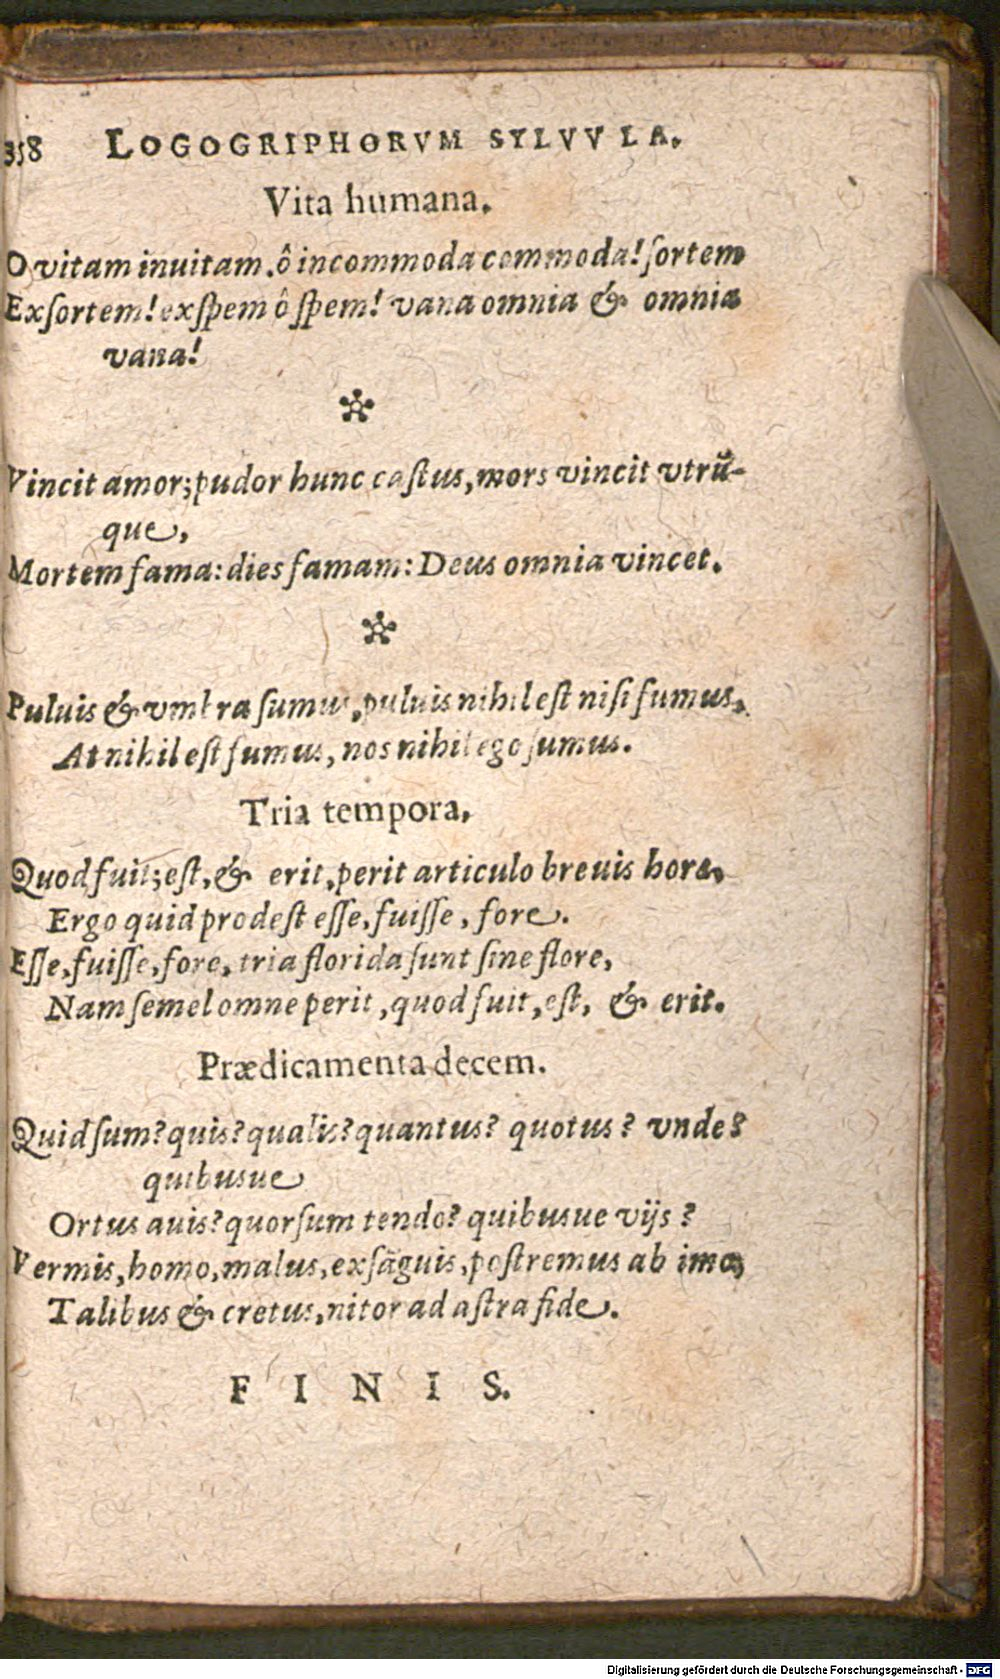 358 LOGOGRIPHORVM SYLVVLA.
Vita humana.
O vitam inuitam. ô incommoda commoda! ſortem
Exſortem! exſpem ô ſpem! vana omnia & omnia
vana!
Vincit amor; pudor hunc caſtus, mors vincit vtrũ-
que,
Mortem fama: dies famam: Deus omnia vincet.
Puluis & vmbra ſumus, puluis nihil eſt niſi fumus,
At nihil eſt fumus, nos nihil ego ſumus.
Tria tempora.
Quod fuit; eſt, & erit, perit articulo breuis horæ,
Ergo quid prodeſt eſſe, fuiſſe, fore.
Eſſe, fuiſſe, fore, tria florida ſunt ſine flore,
Nam ſemel omne perit, quod fuit, eſt, & erit.
Prædicamenta decem.
Quid ſum? quis? qualis? quantus? quotus? vnde?
quibusue
Ortus auis? quorſum tendo? quibusue vijs?
Vermis, homo, malus, exſãguis, poſtremus ab imo,
Talibus & cretus, nitor ad aſtra fide.
FINIS.
Digitalisierung gefördert durch die Deutsche Forschungsgemeinschaft - DFG